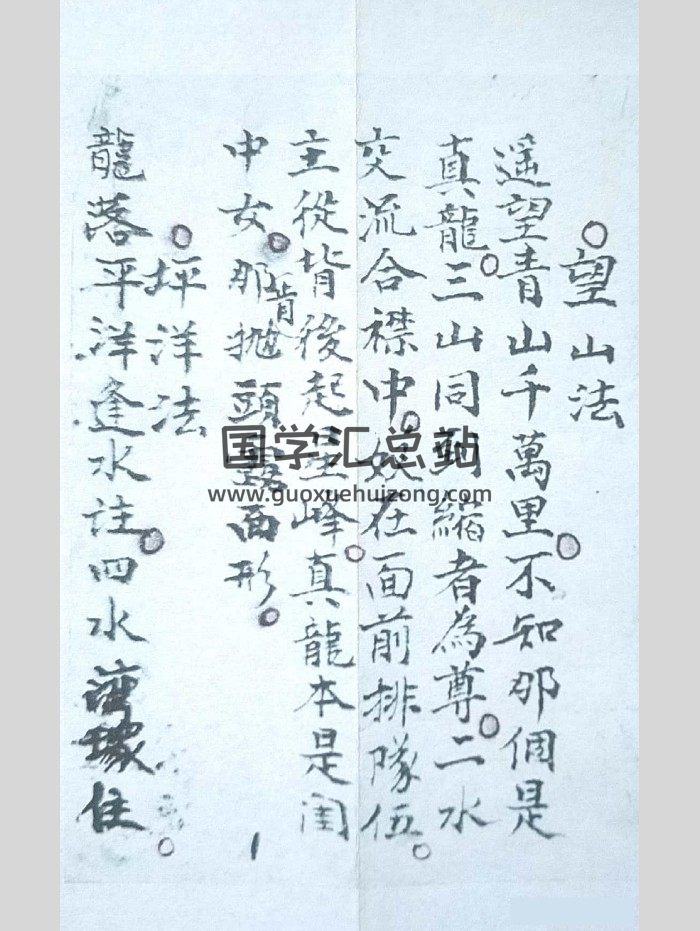 望山法
遥望青山千萬里不知那個是
真龍三山同到縮者為尊二水
交流合襟中在面前排隊伍
主從背後起星峰真龍本是闺
中女那肯抛頭露面形
坪洋法
龍落平洋逢水註四水住
国学汇总站
www.guoxuehuizong.com